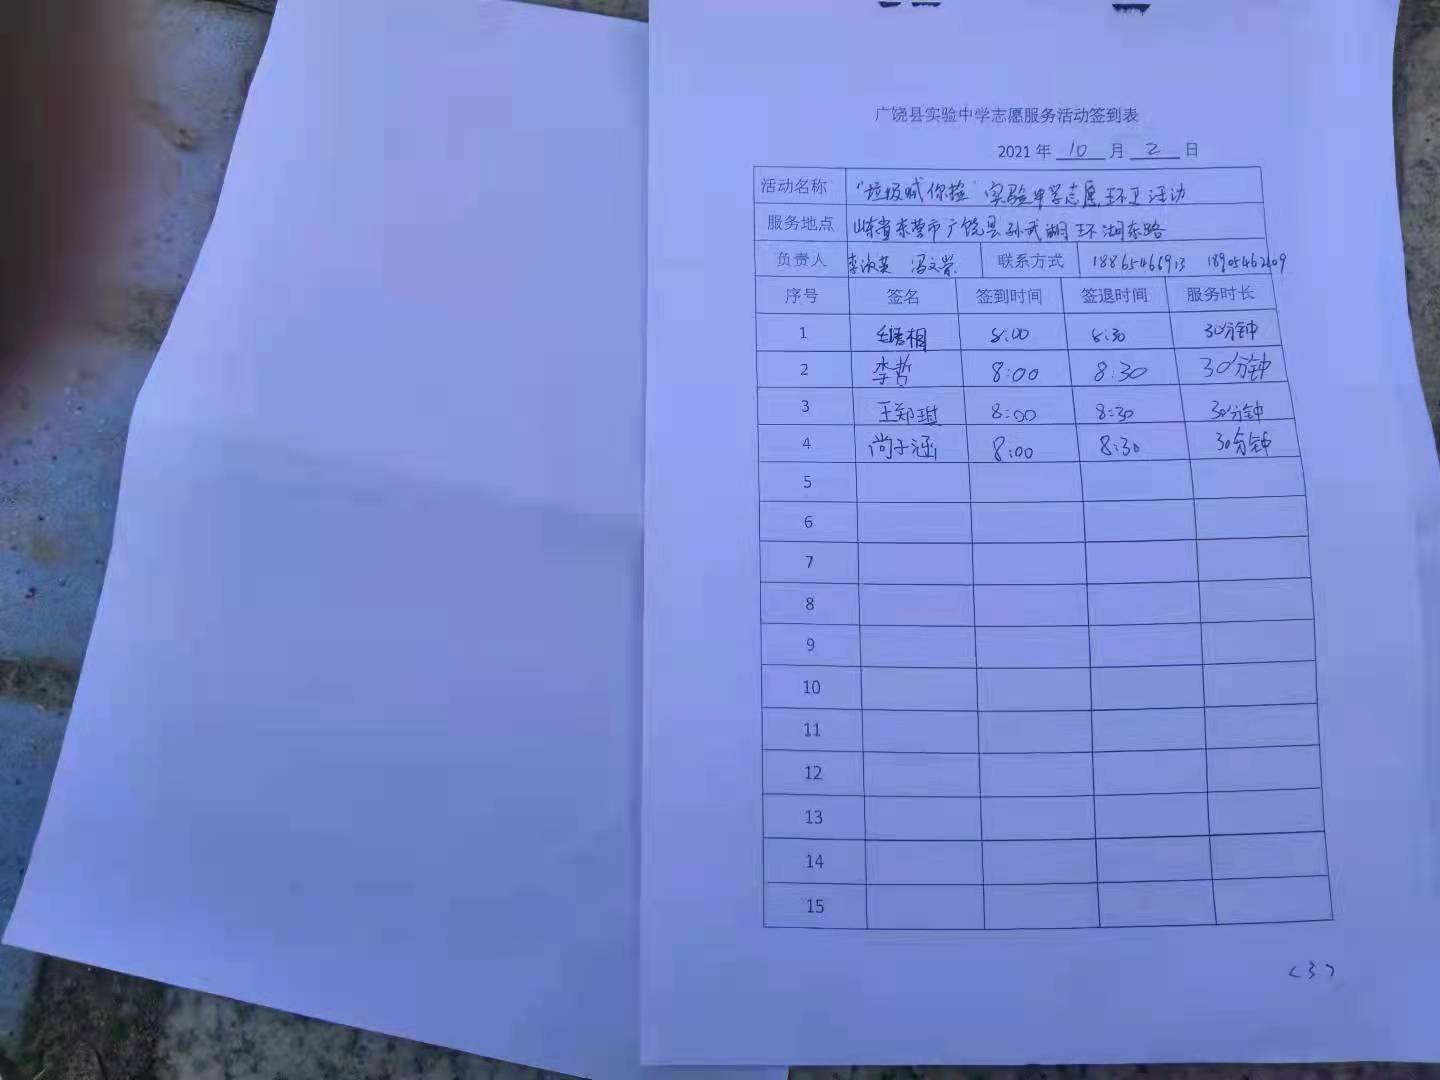 广饶县实验中学志愿服务活动签到表
2021 年 10 月 2 日
活动名称 "垃圾贼你捡" 实验中学志愿环卫活动
服务地点 山东省东营市广饶县孙武湖环湖东路
负责人 李淑英 冯文荣 联系方式 18865466913 18905462609
序号 签名 签到时间 签退时间 服务时长
1 8:00 8:30 30分钟
2 李哲 8:00 8:30 30分钟
3 王郑琪 8:00 8:30 30分钟
4 尚子涵 8:00 8:30 30分钟
5
6
7
8
9
10
11
12
13
14
15
(3)